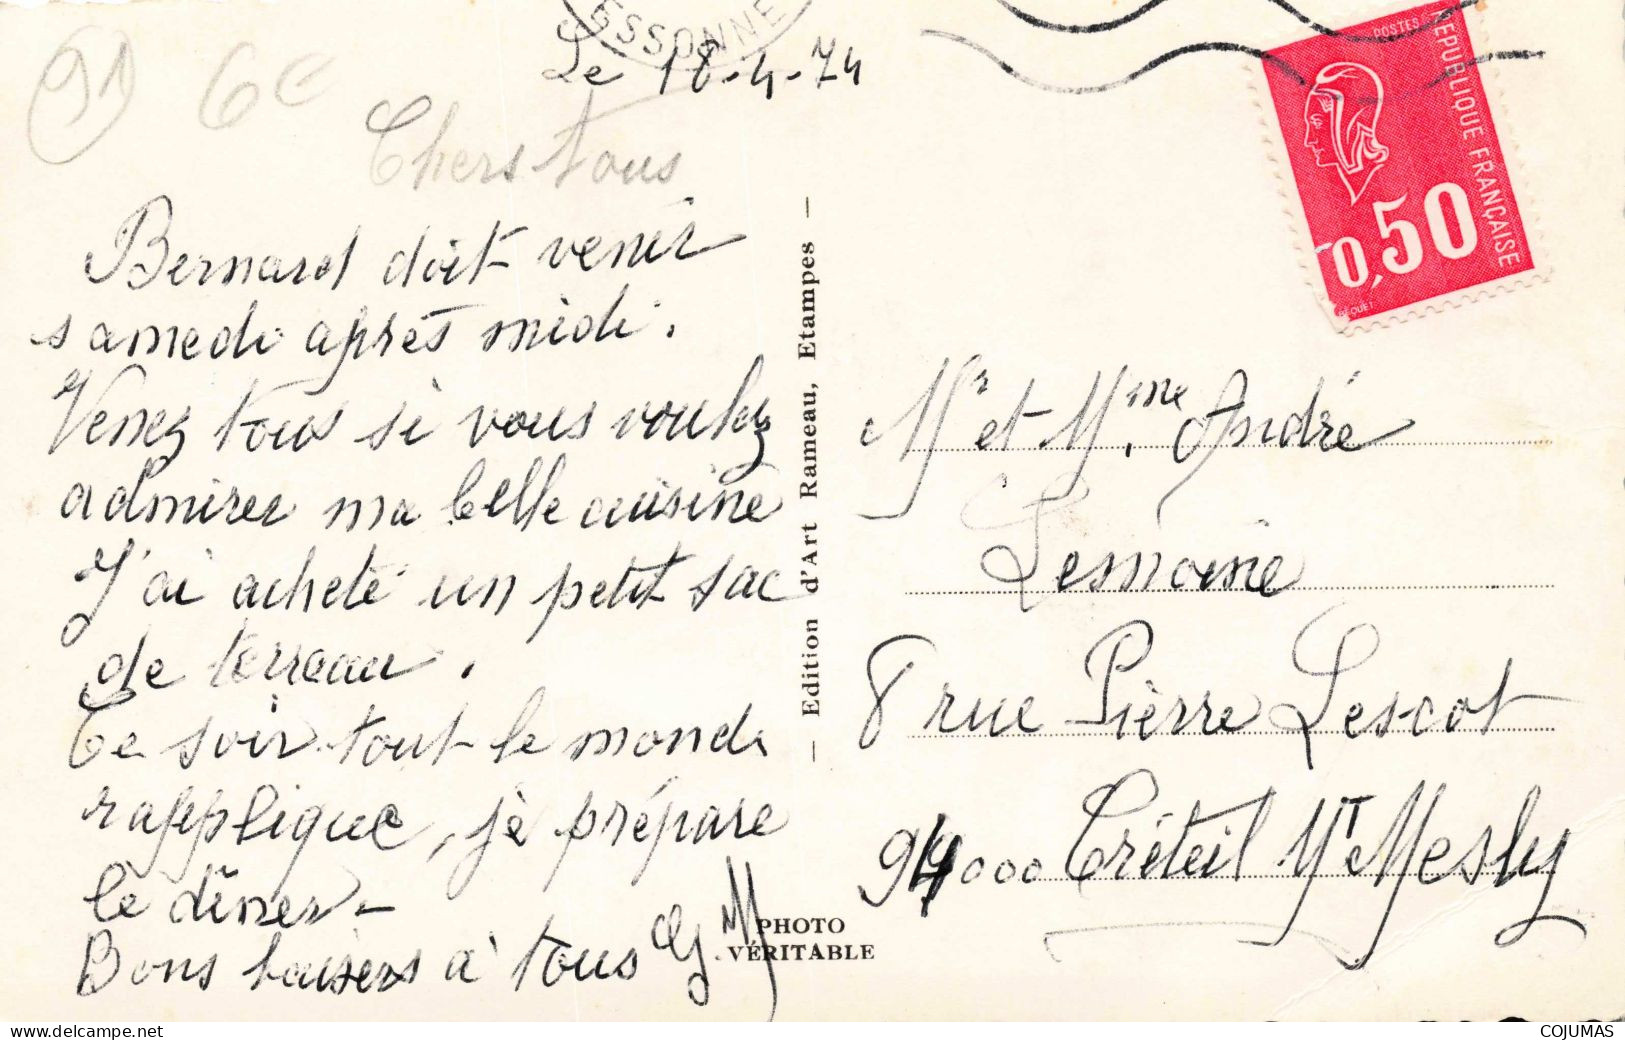 ESSONNE
Le 18-4-74
91
6e
Chers tous
Bernard doit venir
samedi après midi.
Venez tous si vous voulez
admirer ma belle cuisine
J'ai acheté un petit sac
de terreau.
Ce soir tout le monde
rapplique, je prépare
le dîner -
Bons baisers à tous GM
- Edition d'Art Rameau, Etampes -
PHOTO
VÉRITABLE
POSTES
REPUBLIQUE FRANÇAISE
0,50
BEQUET
Mr et Mme André
Lemoine
8 rue Pierre Lescot
94000 Créteil Mt Mesly
https://www.delcampe.net
COJUMAS